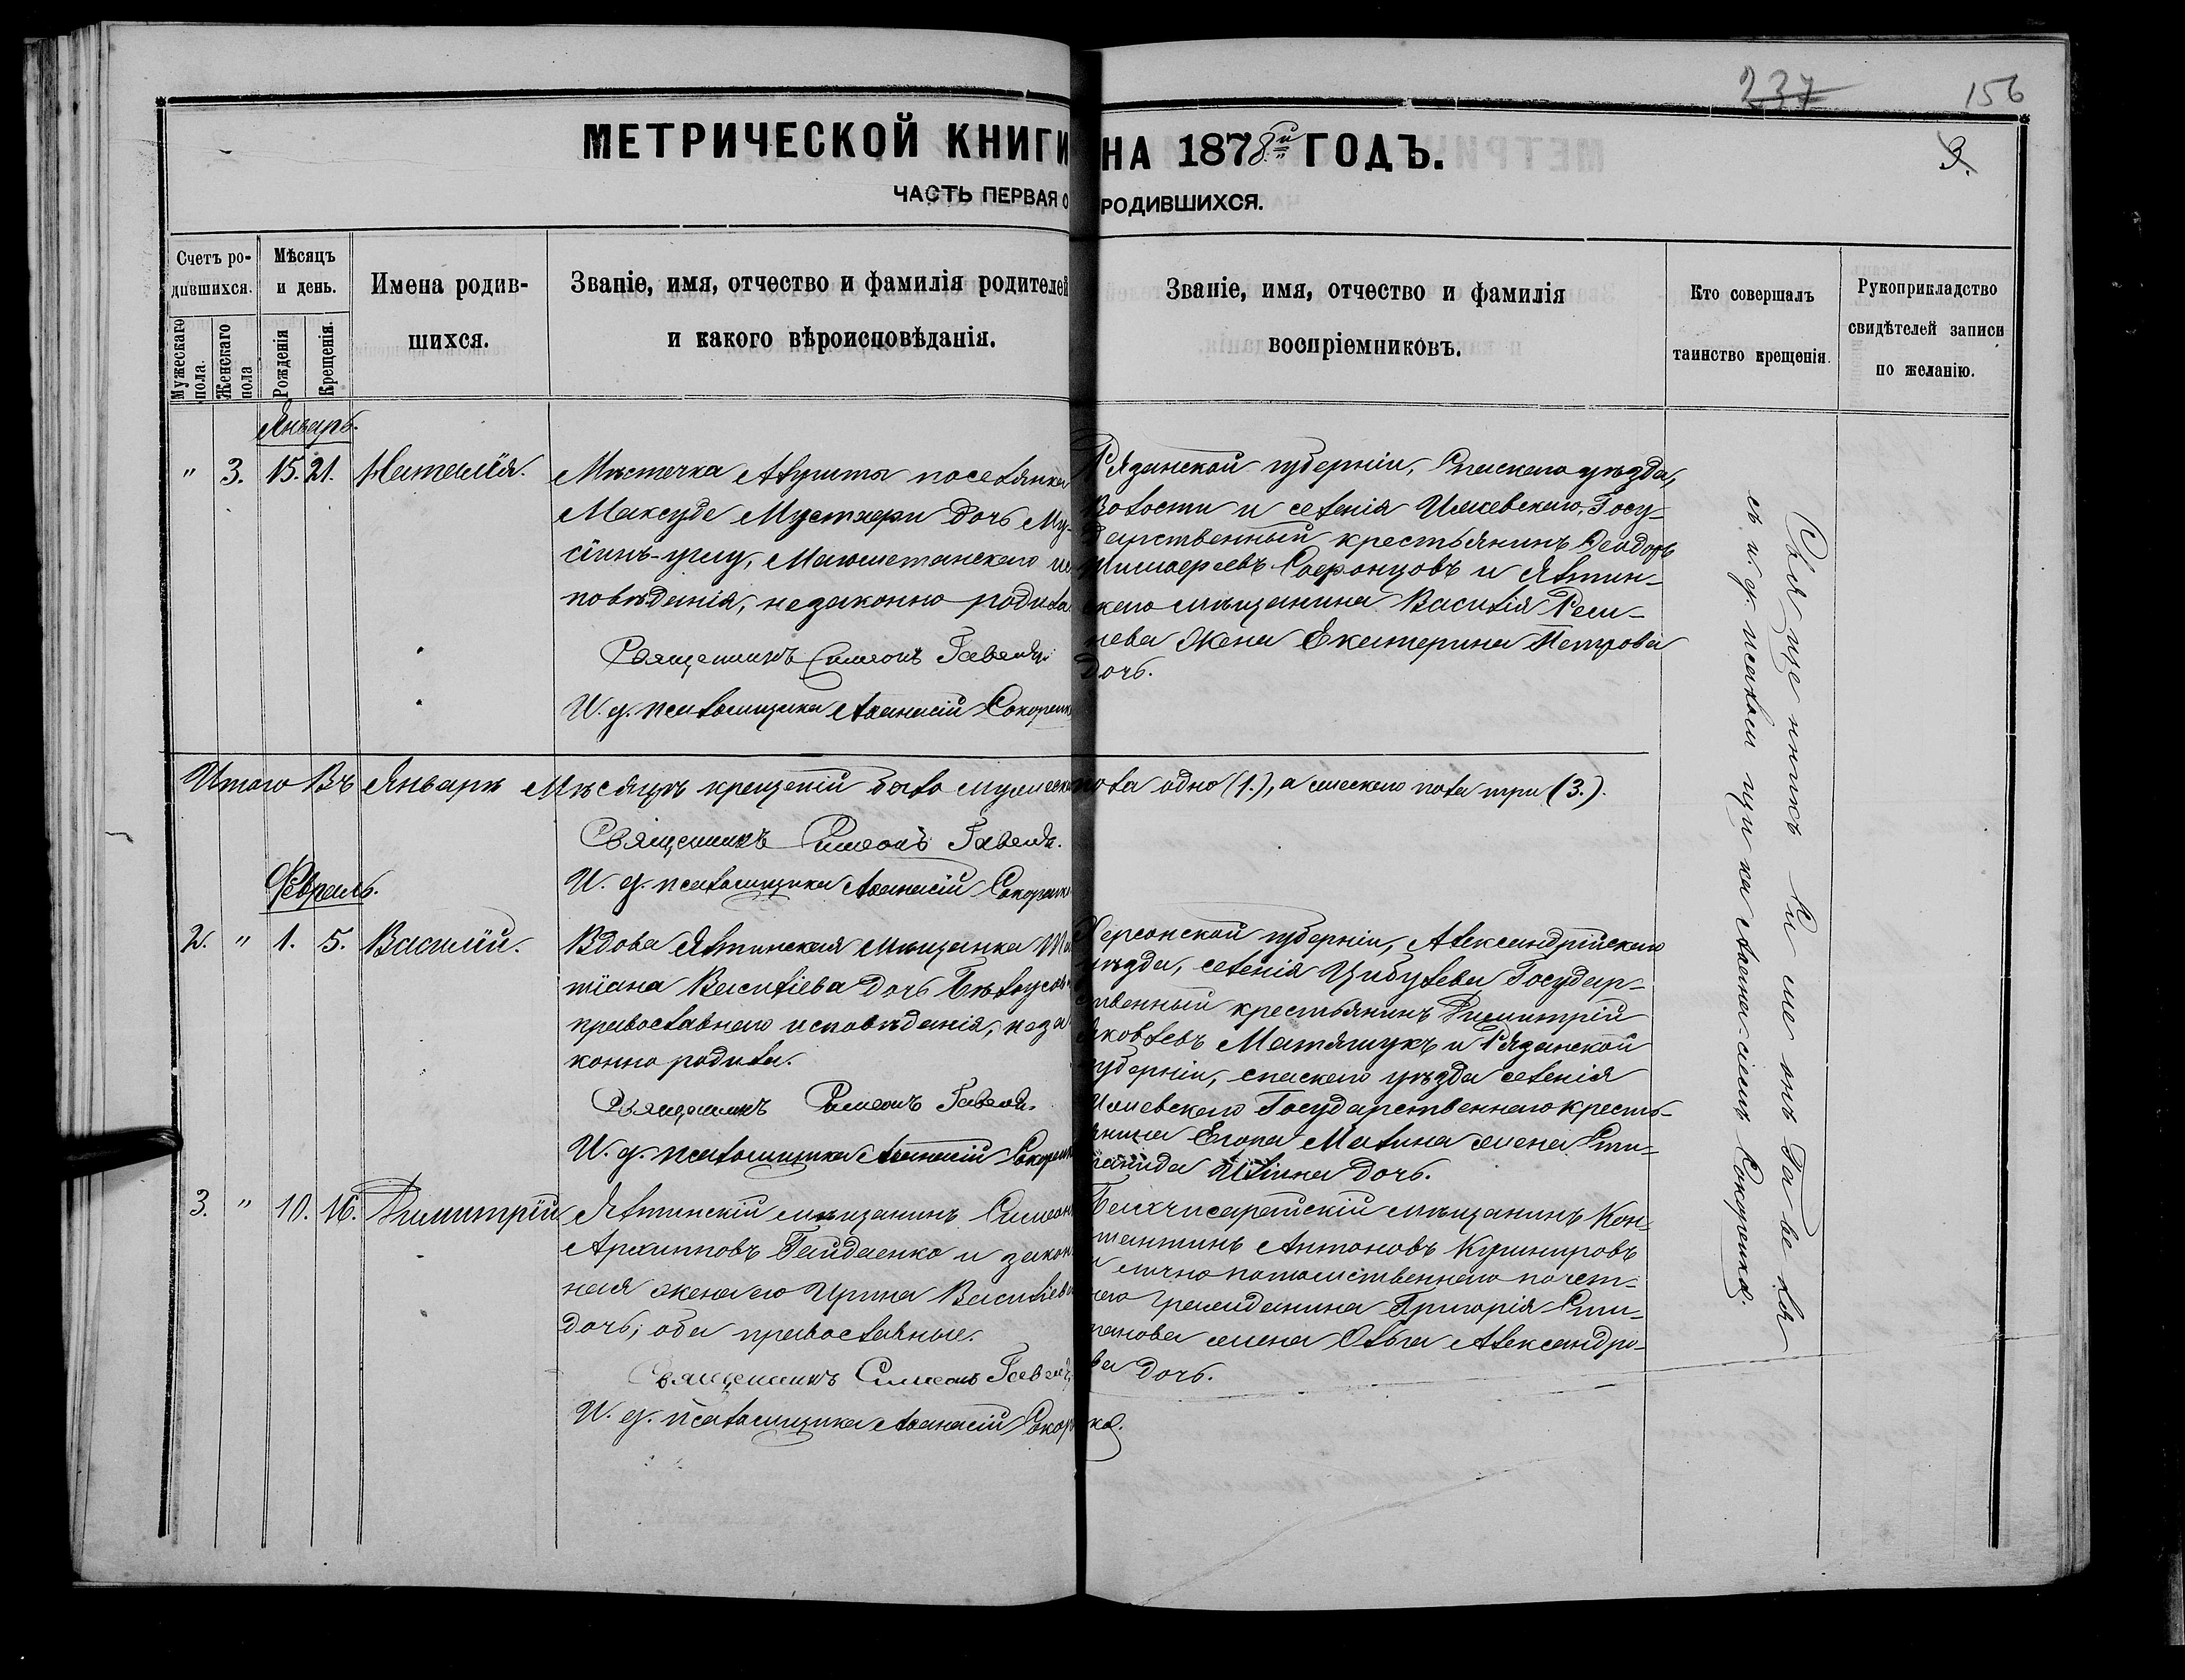 237
156
9.
МЕТРИЧЕСКОЙ КНИГИ НА 1878й ГОДЪ.
ЧАСТЬ ПЕРВАЯ О РОДИВШИХСЯ.
Счетъ родившихся.
Мужескаго пола.
Женскаго пола
Мѣсяцъ и день.
Рожденія
Крещенія.
Имена родив-
шихся.
Званіе, имя, отчество и фамилія родителей
и какого вѣроисповѣданія.
Званіе, имя, отчество и фамилія
воспріемниковъ.
Кто совершалъ
таинство крещенія.
Рукоприкладство
свидѣтелей записи
по желанію.
Январь.
" 3. 15. 21. Наталія.
Мѣстечка Алушты поселянка
Максуде Мустафи дочь Му-
сіинъ-углу, Магометанскаго ис
повѣданія, незаконно родила
Священникъ Симеонъ Гавел
И. д. псаломщика Аѳанасій Сокоренк
Рязанской губерніи, Спаскаго уѣзда,
Волости и селенія Ижевскаго, Госу-
дарственный крестьянинъ Ѳеодоръ
Тимоѳеевъ Софонцовъ и Ялтин-
скаго мѣщанина Василія
жена Екатерина Петрова
дочь.
Итого въ Январѣ Мѣсяцѣ крещеній было мужеск пола одно (1.), а женскаго пола три (3.).
Священникъ Симеонъ Гавел
И. д. псаломщика Аѳанасій Сокоренк
Февраль.
2. " 1. 5. Василій.
Вдова Ялтинская мѣщанка Та
тіана Василіева дочь Бѣлоусов
православнаго исповѣданія, неза
конно родила.
Священникъ Симеонъ Гавел
И. д. псаломщика Аѳанасій Сокоренк
Херсонской губерніи, Александрійскаго
уѣзда, селенія Цибулева Государ-
ственный крестьянинъ Димитрій
Яковлевъ Матяшукъ и Рязанской
губерніи, спаскаго уѣзда селенія
Ижевскаго Государственнаго кресть-
янина Егора Малина жена Сти-
панида Иліина дочь.
3. " 10. 16. Димитрій
Ялтинскій мѣщанинъ Симеон
Архипповъ Гайдаенко и закон
ная жена его Ирина Василіева
дочь, оба православные.
Священникъ Симеонъ Гавел
И. д. псаломщика Аѳанасій Сокор ко.
Бахчисарайскій мѣщанинъ Кон-
стантинъ Антоновъ Кушнировъ
и лично потомственнаго почет-
наго гражданина Григорія Сти-
панова жена Ольга Александро-
ва дочь.
Симеонъ Гавел
съ и. д. псаломщика Аѳанасіемъ Сокоренко.